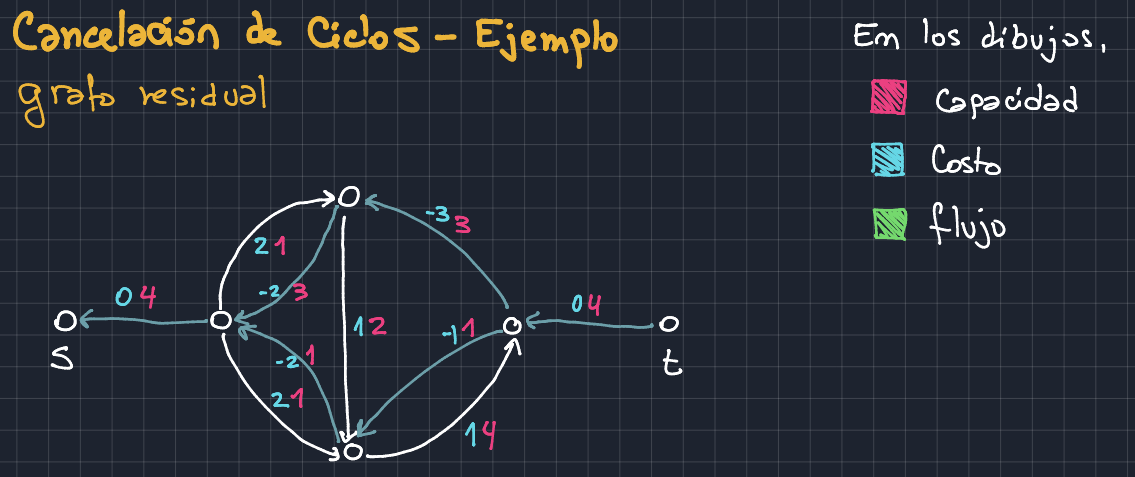 Cancelación de Ciclos - Ejemplo
grafo residual
En los dibujos,
Capacidad
Costo
flujo
-3 3
2 1
-2 3
0 4
0 4
1 2
-1 1
-2 1
2 1
1 4
s
t